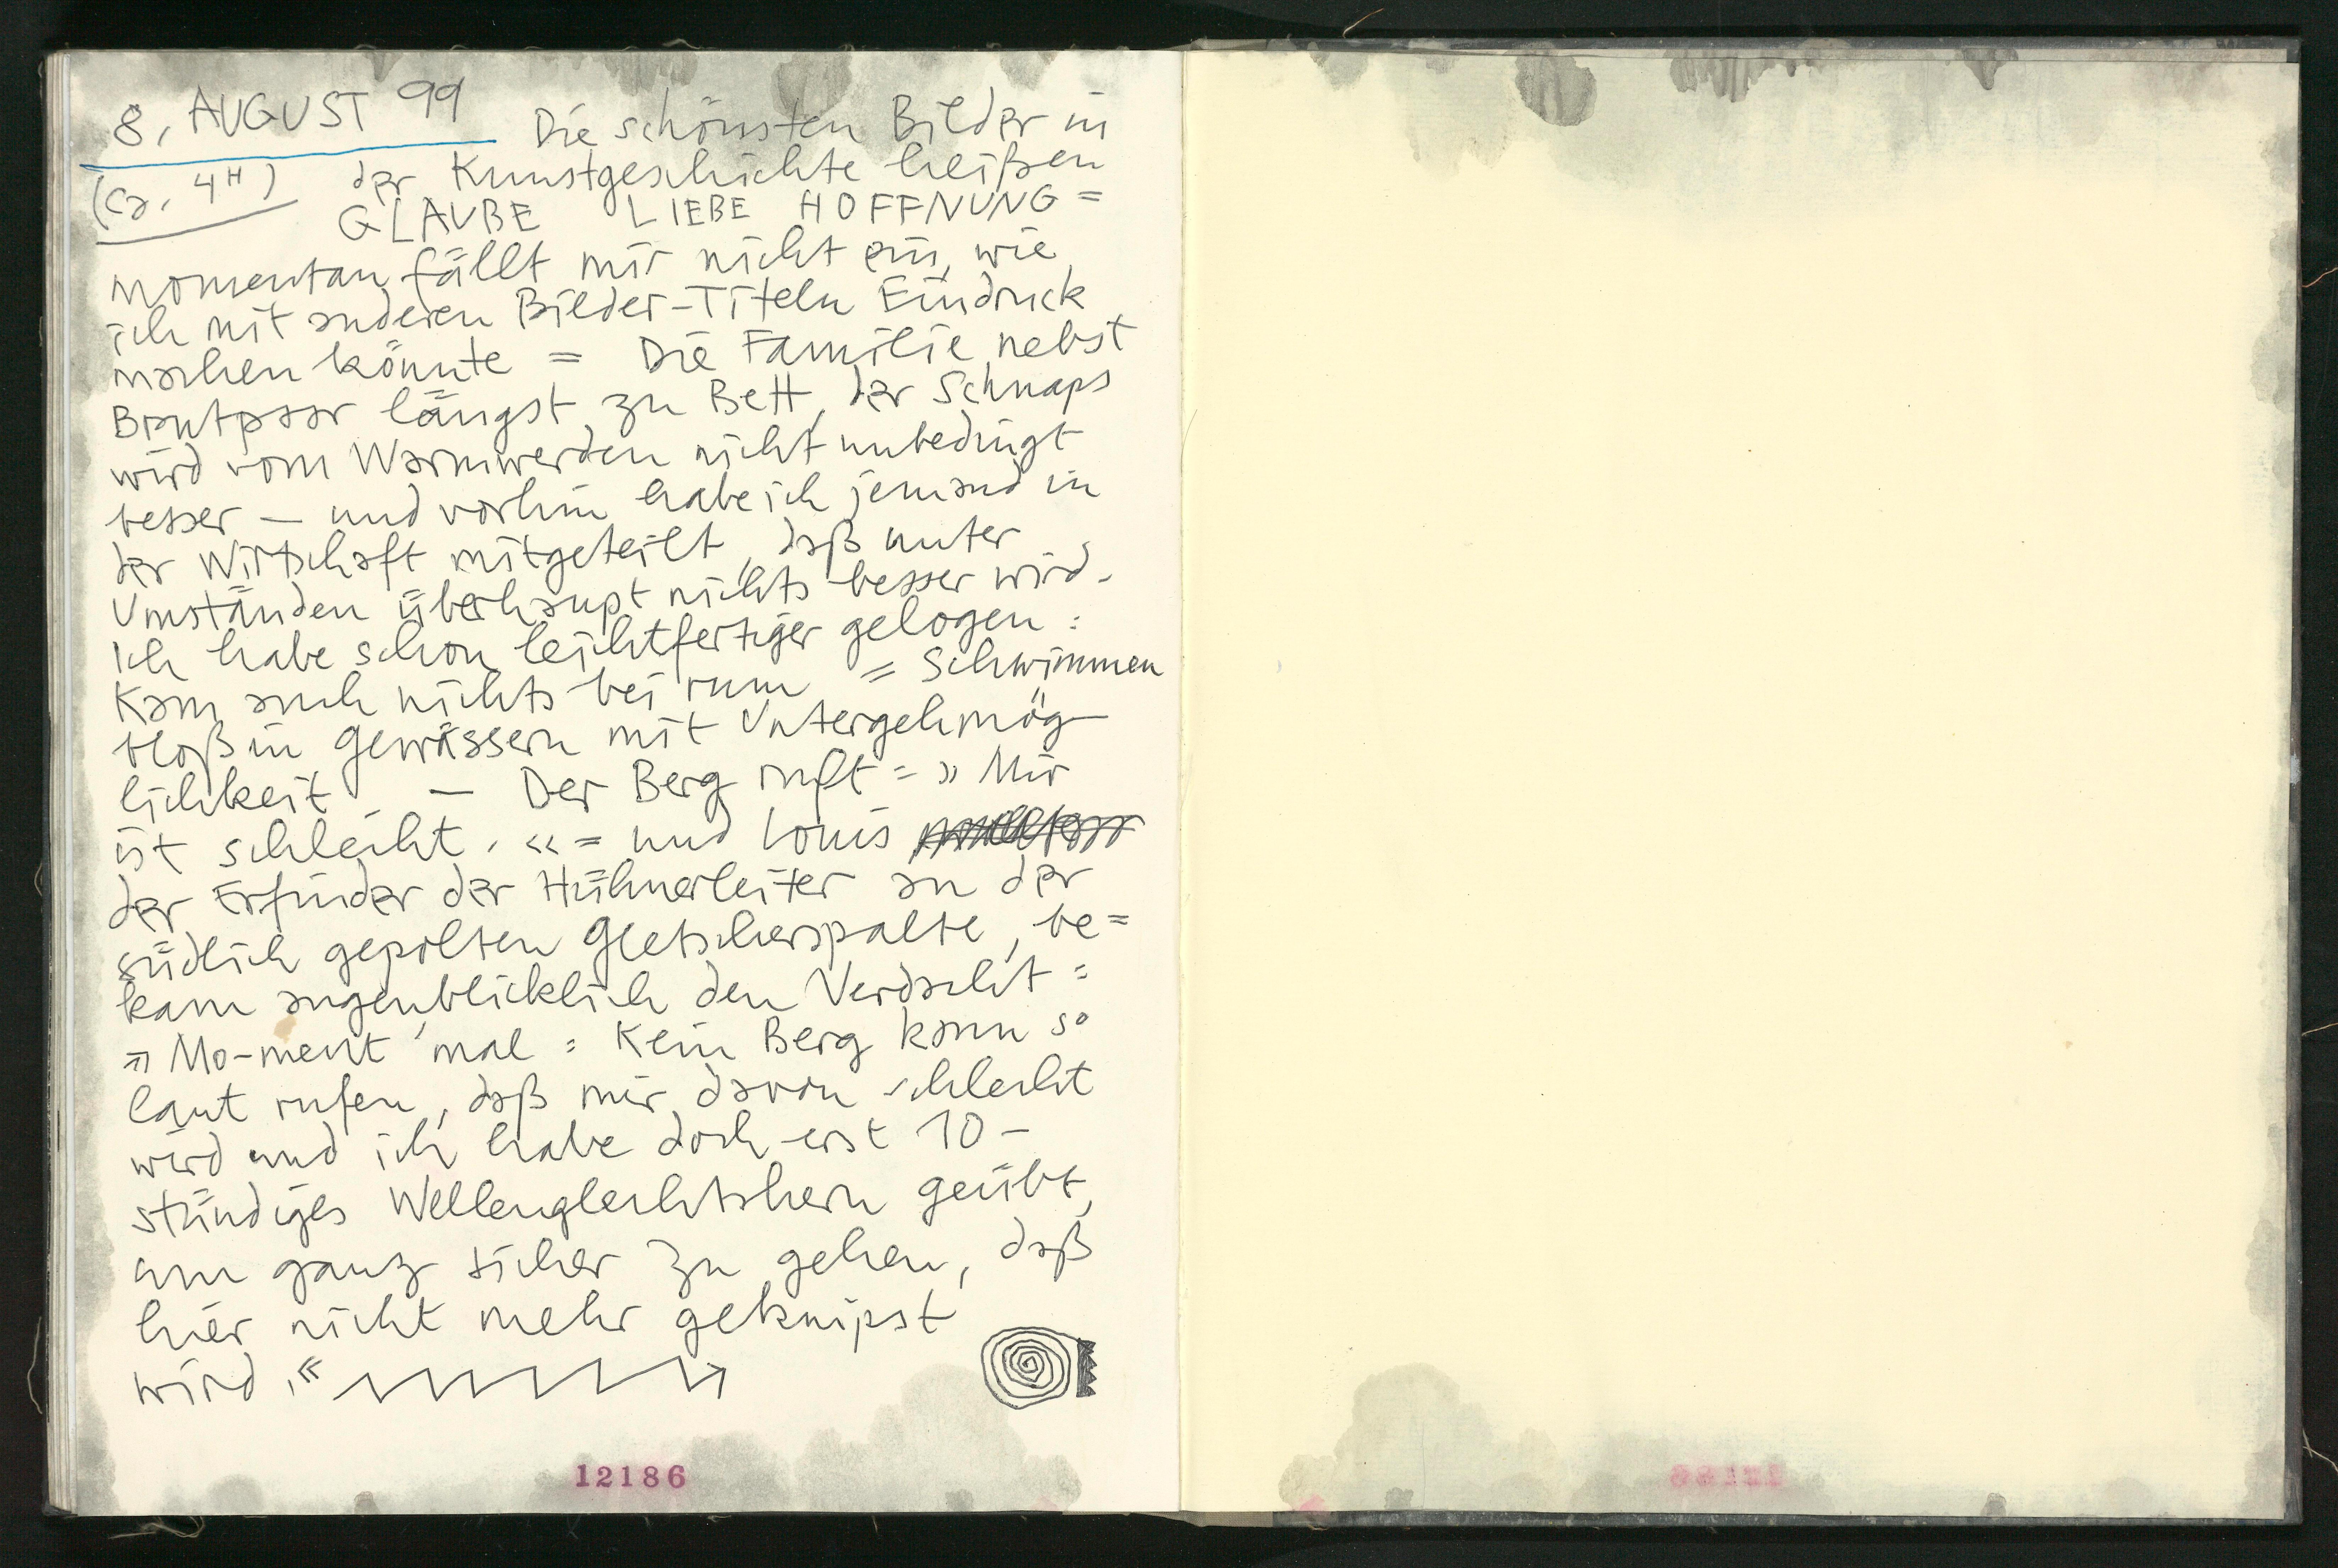 8. AUGUST 99 Die schönsten Bilder in
(ca. 4H) der Kunstgeschichte heißen
GLAUBE LIEBE HOFFNUNG =
momentan fällt mir nicht ein, wie
ich mit anderen Bilder-Titeln Eindruck
machen könnte = Die Familie nebst
Brautpaar längst zu Bett, der Schnaps
wird vom Warmwerden nicht unbedingt
besser — und vorhin habe ich jemand in
der Wirtschaft mitgeteilt, daß unter
Umständen überhaupt nichts besser wird.
Ich habe schon leichtfertiger gelogen :
Kam auch nichts bei rum = Schwimmen
bloß in Gewässern mit Untergehmög-
lichkeit. — Der Berg ruft = » Mir
ist schlecht. « = und Louis
der Erfinder der Hühnerleiter an der
südlich gepolten Gletscherspalte, be=
kam augenblicklich den Verdacht =
» Mo-ment 'mal : Kein Berg kann so
laut rufen, daß mir davon schlecht
wird und ich habe doch erst 10-
stündiges geübt,
um ganz sicher zu gehen, daß
hier nicht mehr geknipst
wird. «
12186